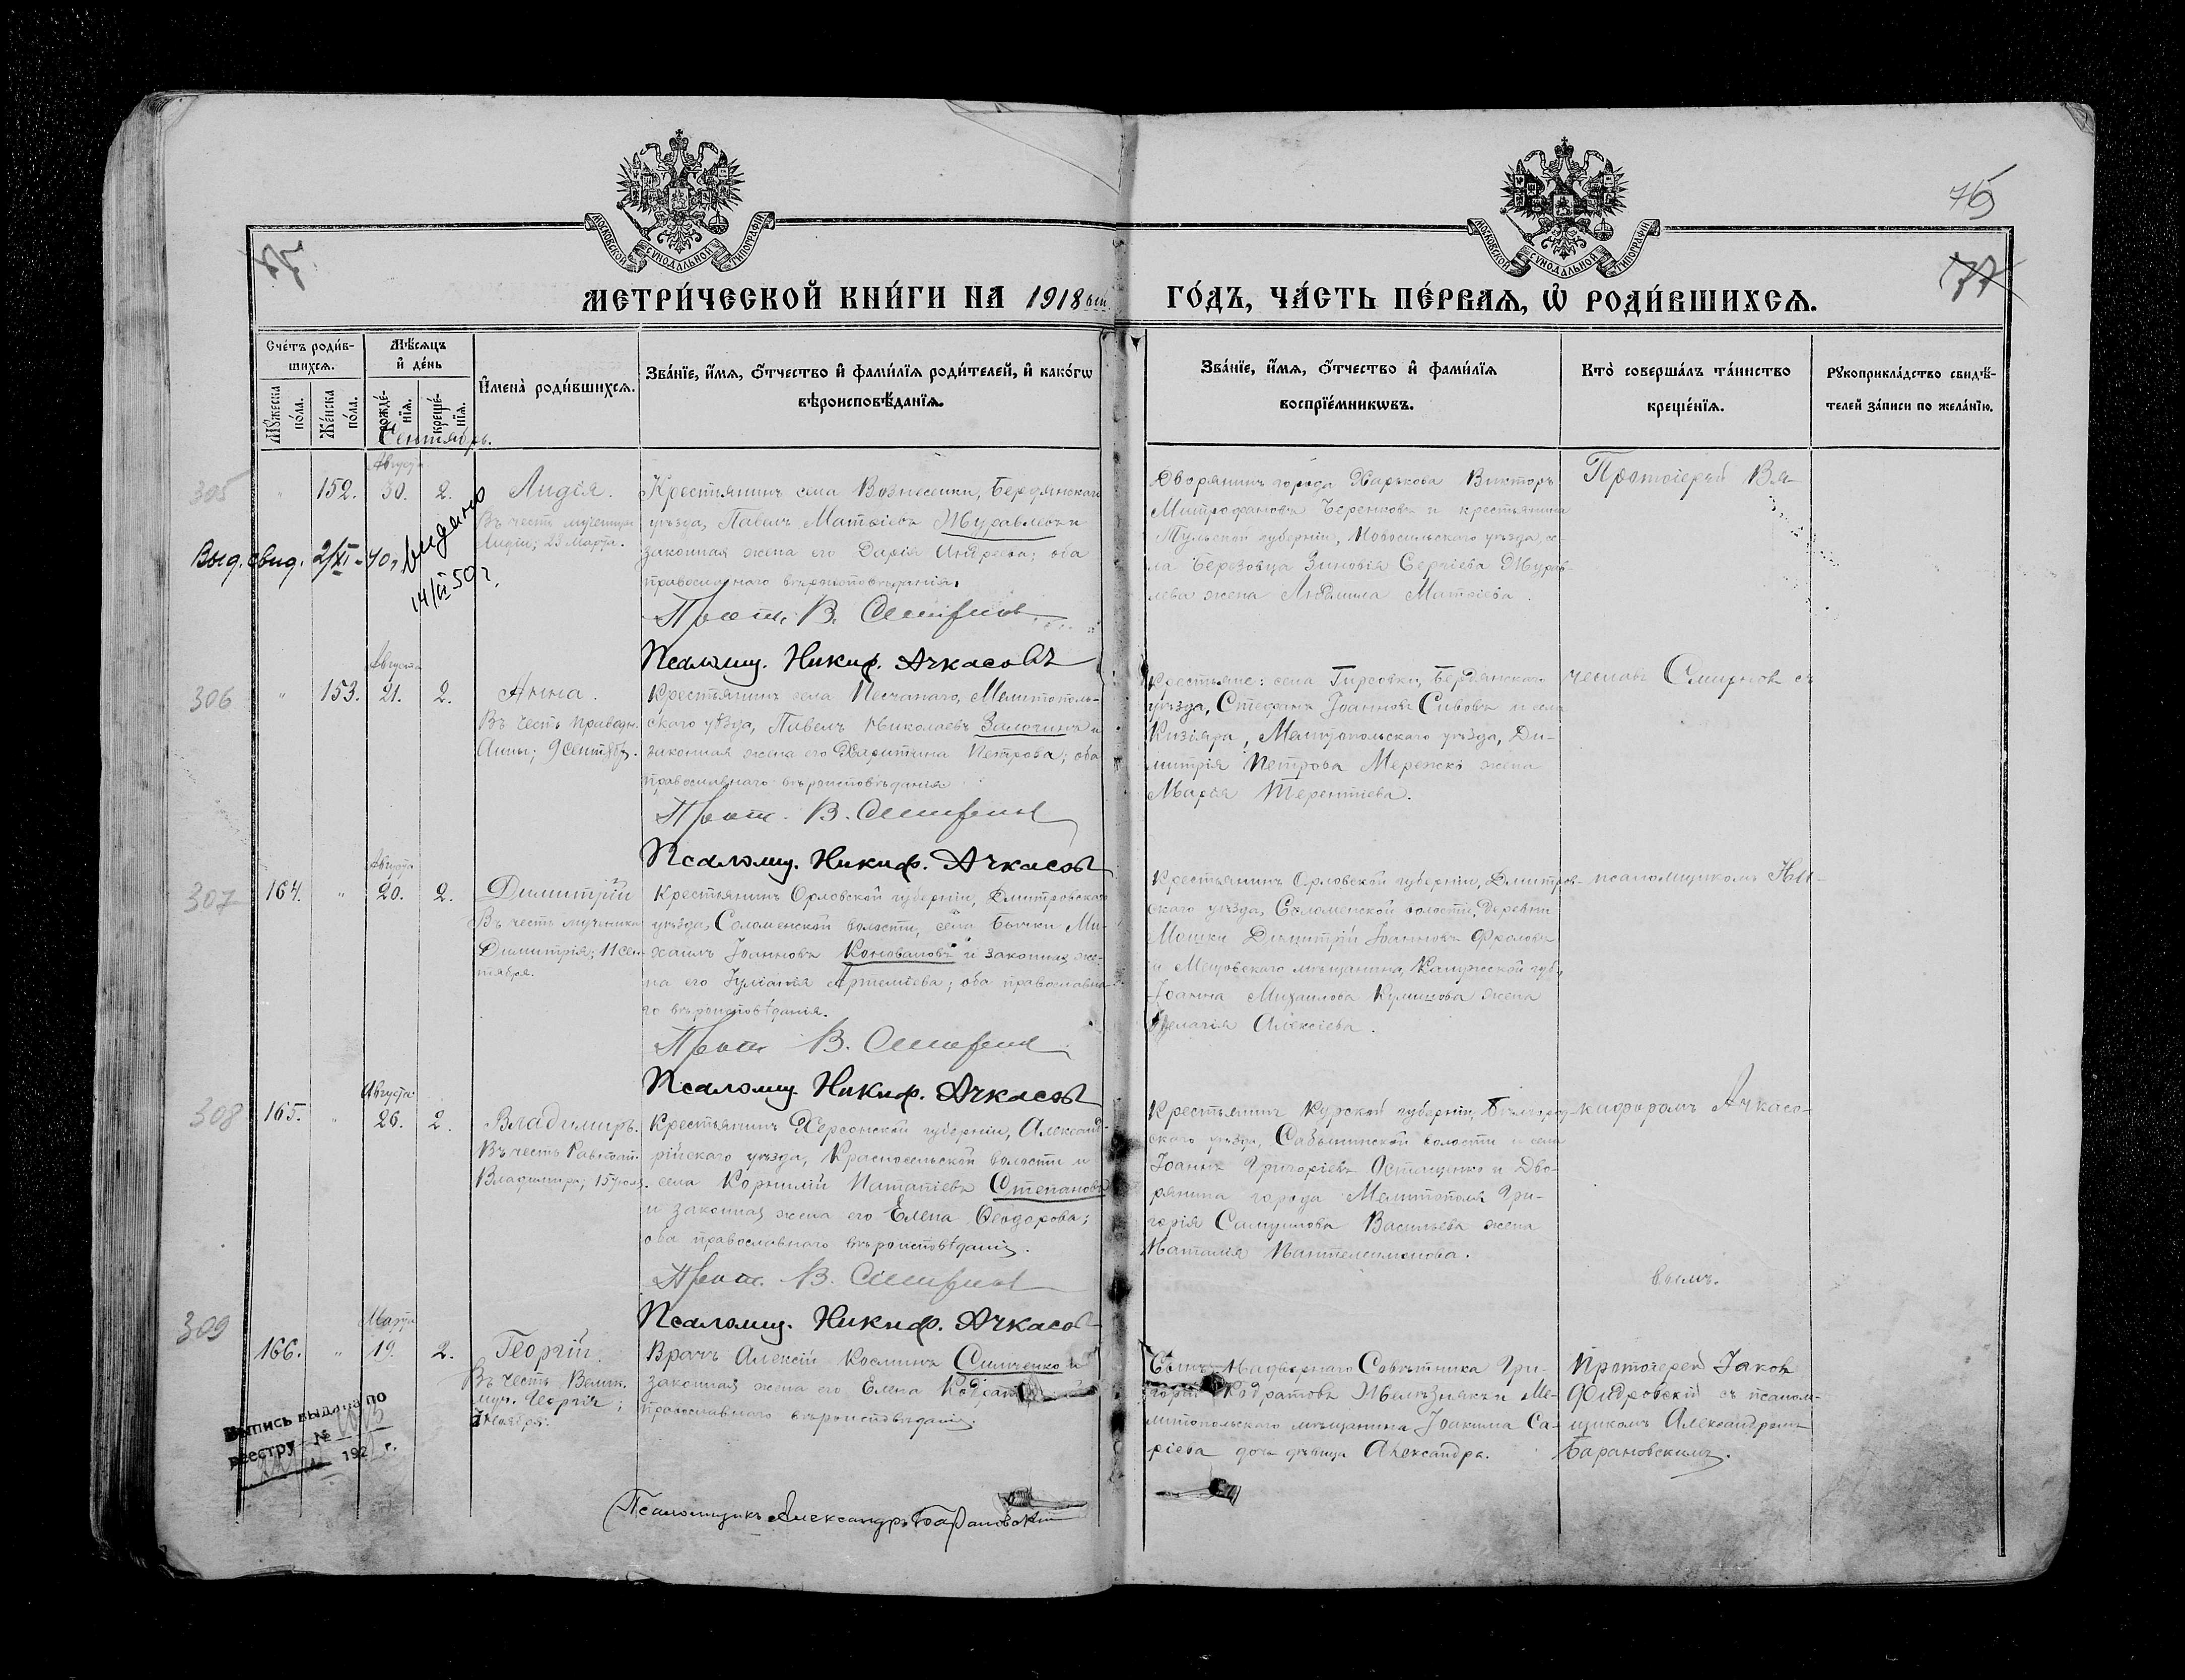 МОСКОВСКОЙ СУНОДАЛЬНОЙ ТИПОГРАФІИ
МОСКОВСКОЙ СУНОДАЛЬНОЙ ТИПОГРАФІИ
76
77
МЕТРИ́ЧЕСКОЙ КНИ́ГИ НА 1918 ГО́ДЪ, ЧА́СТЬ ПЕ́РВАЯ, Ѡ҆ РОДИ́ВШИХСЯ.
Сче́тъ роди́в-
шихсѧ.
Мꙋ́жеска по́ла.
Же́нска по́ла.
Мѣ́сѧцъ и҆ де́нь
рожде́-нїѧ.
креще́-нїѧ.
И҆мена̀ роди́вшихсѧ.
Зва́нїе, и҆́мѧ, ѻ҆́тчество и҆ фами́лїѧ роди́телей, и҆ како́гѡ
вѣроисповѣ́данїѧ.
Зва́нїе, и҆́мѧ, ѻ҆́тчество и҆ фами́лїѧ
воспрїе́мникѡвъ.
Кто̀ соверша́лъ та́инство
креще́нїѧ.
Рꙋкоприкла́дство свидѣ́-
телей за́писи по жела́нїю.
Сентябрь.
305
" 152.
Августа
30. 2.
Лидія.
Въ честь мученицы
Лидіи; 23 Марта.
Выд. свид. 2/XI-40 г
выдано
14/II 50 г.
Крестьянинъ села Вознесенки, Бердянскаго
уѣзда, Павелъ Матѳіевъ Журавлевъ и
законная жена его Дарія Андреева; оба
православнаго вѣроисповѣданія.
Прот. В. Смирнов
Псаломщ. Никиф. Ачкасовъ
Дворянинъ города Харькова Викторъ
Митрофановъ Беренковъ и крестьянина
Тульской губерніи, Новосильскаго уѣзда, се-
ла Березовца Зиновія Сергіева Журав-
лева жена Людмила Матѳіева.
Протоіерей Вя-
306
" 153.
Августа
21. 2.
Анна.
Въ честь праведн.
Анны; 9 Сентябр.
Крестьянинъ села Песчанаго, Мелитополь-
скаго уѣзда, Павелъ Николаевъ Залочинъ и
законная жена его Харитина Петрова; оба
православнаго вѣроисповѣданія
Прот. В. Смирнов
Псаломщ. Никиф. Ачкасов
Крестьяне: села Гирсовки, Бердянскаго
уѣзда, Стефанъ Іоанновъ Сивовъ и села
Кизіяра, Мелитопольскаго уѣзда, Ди-
митрія Петрова Мережко жена
Марія Терентіева.
чеславъ Смирновъ съ
307
164. "
Августа
20. 2.
Димитрій
Въ честь мученика
Димитрія; 11 Сен-
тября.
Крестьянинъ Орловской губерніи, Дмитровскаго
уѣзда, Соломенской волости, села Бычки Ми-
хаилъ Іоанновъ Коноваловъ и законная же-
на его Іуліанія Артеміева; оба православна-
го вѣроисповѣданія.
Прот. В. Смирнов
Псаломщ. Никиф. Ачкасов
Крестьянинъ Орловской губерніи, Дмитров-
скаго уѣзда, Соломенской волости, деревни
Мошки Димитрій Іоанновъ Фроловъ
и Мещовскаго мѣщанина, Калужской губ.,
Іоанна Михаилова Куликова жена
Пелагія Алексіева.
псаломщикомъ Ни-
308
165. "
Августа
26. 2.
Владимиръ.
Въ честь Равноап.
Владимира; 15 Іюля.
Крестьянинъ Херсонской губерніи, Александ-
рійскаго уѣзда, Красносельской волости и
села Корнилій Ипатіевъ Степановъ
и законная жена его Елена Ѳеодорова;
оба православнаго вѣроисповѣданія.
Прот. В. Смирнов
Псаломщ. Никиф. Ачкасов
Крестьянинъ Курской губерніи, Бѣлгород-
скаго уѣзда, Сабынинской волости и села
Іоаннъ Григоріевъ Остащенко и Дво-
рянина города Мелитополя Гри-
горія Самуилова Васильева жена
Наталія Пантелеимонова.
кифоромъ Ачкасо-
вымъ.
309
166. "
Марта
19. 2.
Георгій.
Въ честь Велик.
муч. Георгія;
Ноября.
Выпись выдана по
реестру №
192 г.
Врачъ Алексій Космичъ Симченко и
законная жена его Елена
православнаго вѣроисповѣданія.
Псаломщикъ Александръ Барановскій
Сынъ Надворнаго Совѣтника Гри-
горій Кодратовъ Желѣзнякъ и Ме-
литопольскаго мѣщанина Іоакима Са-
ріева дочь дѣвица Александра.
Протоіерей Іаковъ
Ѳедровскій съ псалом-
щикомъ Александромъ
Барановскимъ.